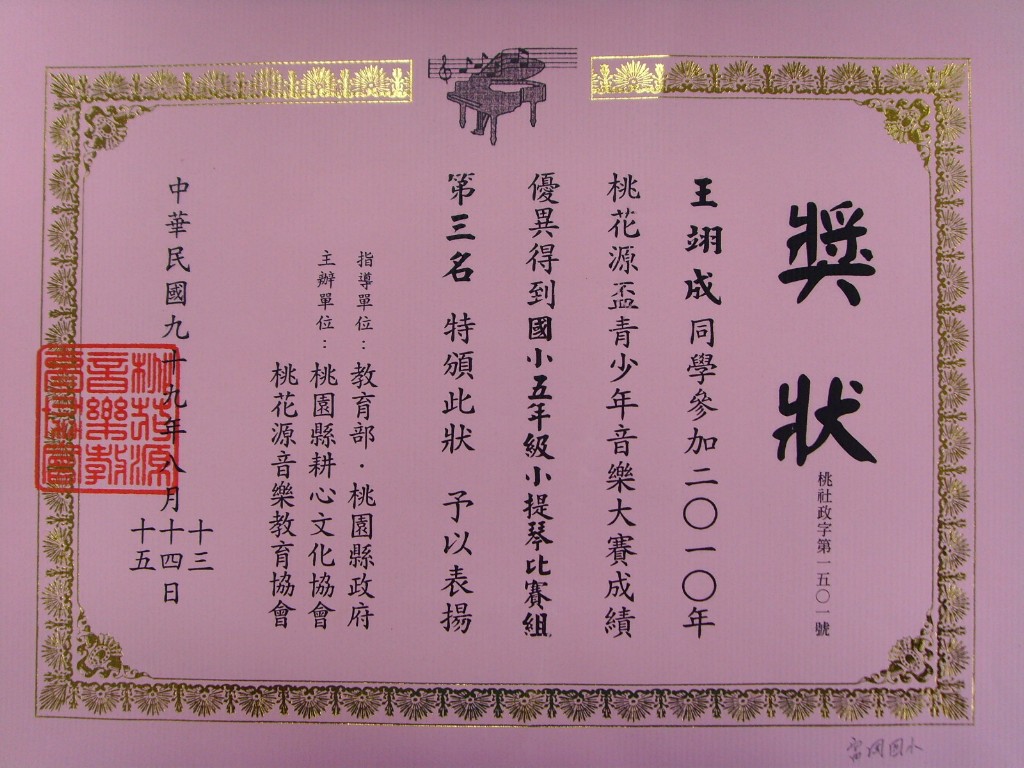 獎狀
桃社政字第一五〇一號
王翊成同學參加二〇一〇年
桃花源盃青少年音樂大賽成績
優異得到國小五年級小提琴比賽組
第三名 特頒此狀 予以表揚
指導單位：教育部．桃園縣政府
主辦單位：桃園縣耕心文化協會
桃花源音樂教育協會
中華民國九十九年八月十三十四十五日
桃花源音樂教育協會